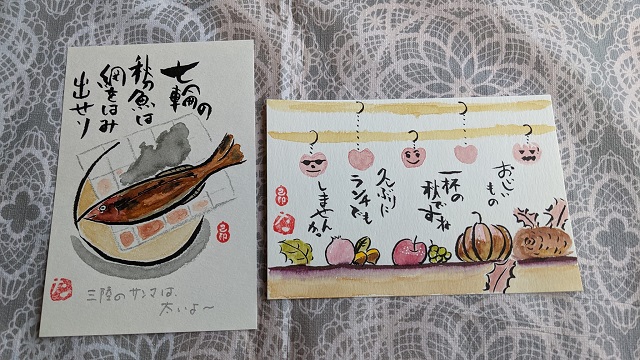 七輪の
秋刀魚は
網をはみ
出せり
三陸のサンマは、
太いよ〜
おいしいもの
一杯の
秋ですね
久しぶりに
ランチでも
しませんか。